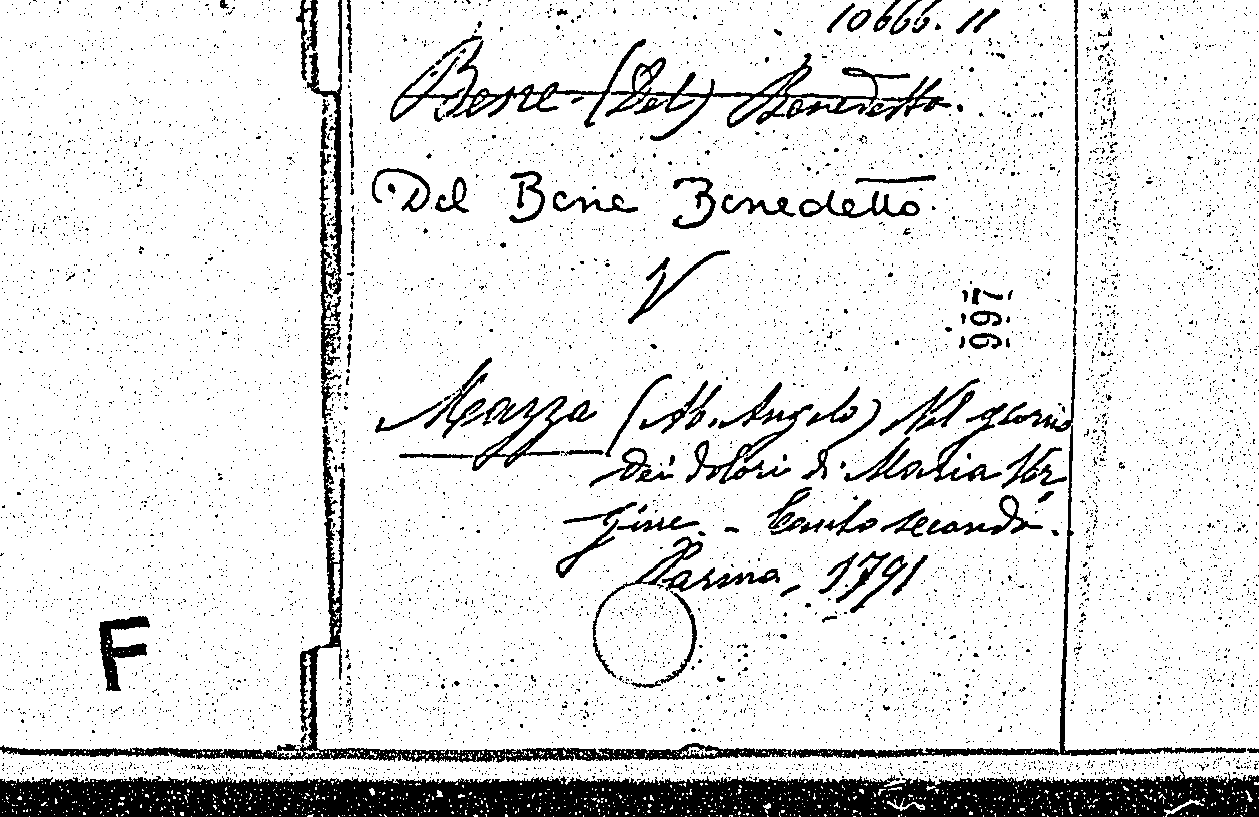 10666. 11
Bene (Del) Benedetto.
Del Bene Benedetto.
V
997
Mazza (Ab. Angelo) Nel giorno
dei dolori di Maria Ver
gine - Canto secondo.
Parma, 1791
F